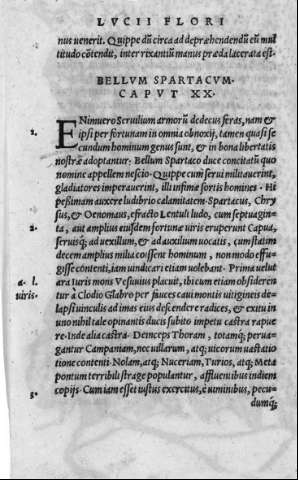 LVCII FLORI
nus uenerit. Quippe dũ circa ad depræhendendũ eũ mul
titudo cõtendit, inter rixantiũ manus præda lacerata est.
BELLVM SPARTACVM.
CAPVT XX.
ENimuero Seruilium armorũ dedecus feras, nam &
2. ipsi per fortunam in omnia obnoxij, tamen quasi se
cundum hominum genus sunt, & in bona libertatis
nostræ adoptantur: Bellum Spartaco duce concitatũ quo
nomine appellem nescio. Quippe cum serui militauerint,
gladiatores imperauerint, illi infimæ sortis homines. Hi
pessimam auxere ludibrio calamitatem. Spartacus, Chry
sus, & Oenomaus, efracto Lentuli ludo, cum septuagin-
2. ta, aut amplius eiusdem fortunæ uiris eruperunt Capua,
seruisq; ad uexillum, & ad auxilium uocatis, cum statim
decem amplius milia coissent hominum, non modo effu-
gisse contenti, iam uindicari etiam uolebant. Prima uelut
a. l. ara iuris mons Vesuuius placuit, ibi cum etiam obsideren
uiris. tur à Clodio Glabro per fauces caui montis uitigineis de-
lapsi uinculis ad imas eius descendere radices, & exitu in
uno nihil tale opinantis ducis subito impetu castra rapue
re. Inde alia castra. Deinceps Thoram, totamq; perua-
gantur Campaniam, nec uillarum, atq; uicorum uastatio
tione contenti. Nolam, atq; Nuceriam, Turios, atq; Meta
pontum terribili strage populantur, affluentibus indiem
3. copijs. Cum iam esset iustus exercitus, è uiminibus, pecu-
dumq;